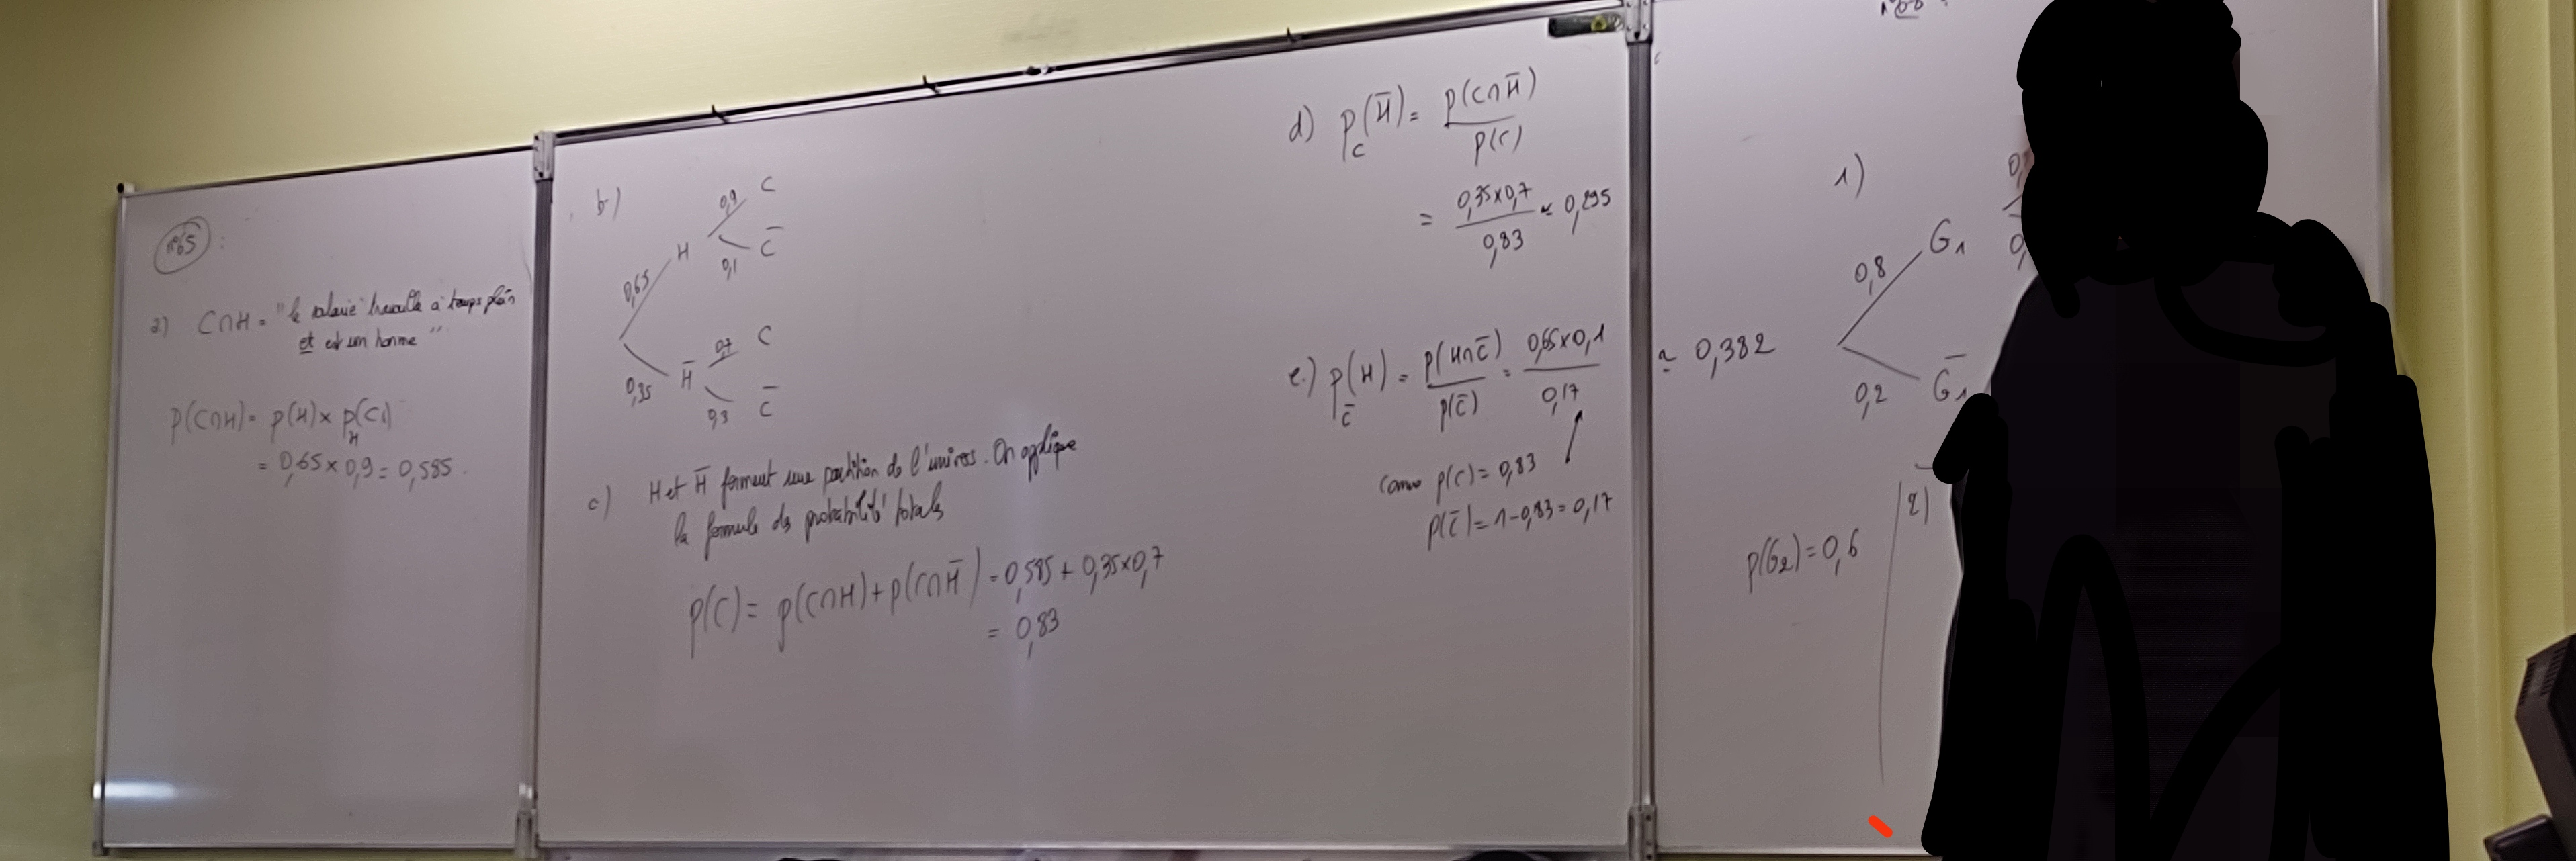 n°65 :
a) C∩H = "le salarié travaille à temps plein
et est un homme"
p(C∩H) = p(H) × p_H(C)
= 0,65 × 0,9 = 0,585.
b)
0,9 C
H
0,1 C̄
0,65
0,7 C
H̄
0,35
0,3 C̄
c) H et H̄ forment une partition de l'univers. On applique
la formule des probabilités totales
p(C) = p(C∩H) + p(C∩H̄) = 0,585 + 0,35×0,7
= 0,83
d) p_C(H̄) = p(C∩H̄) / p(C)
= 0,35×0,7 / 0,83 ≃ 0,295
e.) p_C̄(H) = p(H∩C̄) / p(C̄) = 0,65×0,1 / 0,17 ≃ 0,382
Comme p(C) = 0,83
p(C̄) = 1-0,83 = 0,17
1)
G1
0,8
0,2
Ḡ1
p(G2) = 0,6
2)